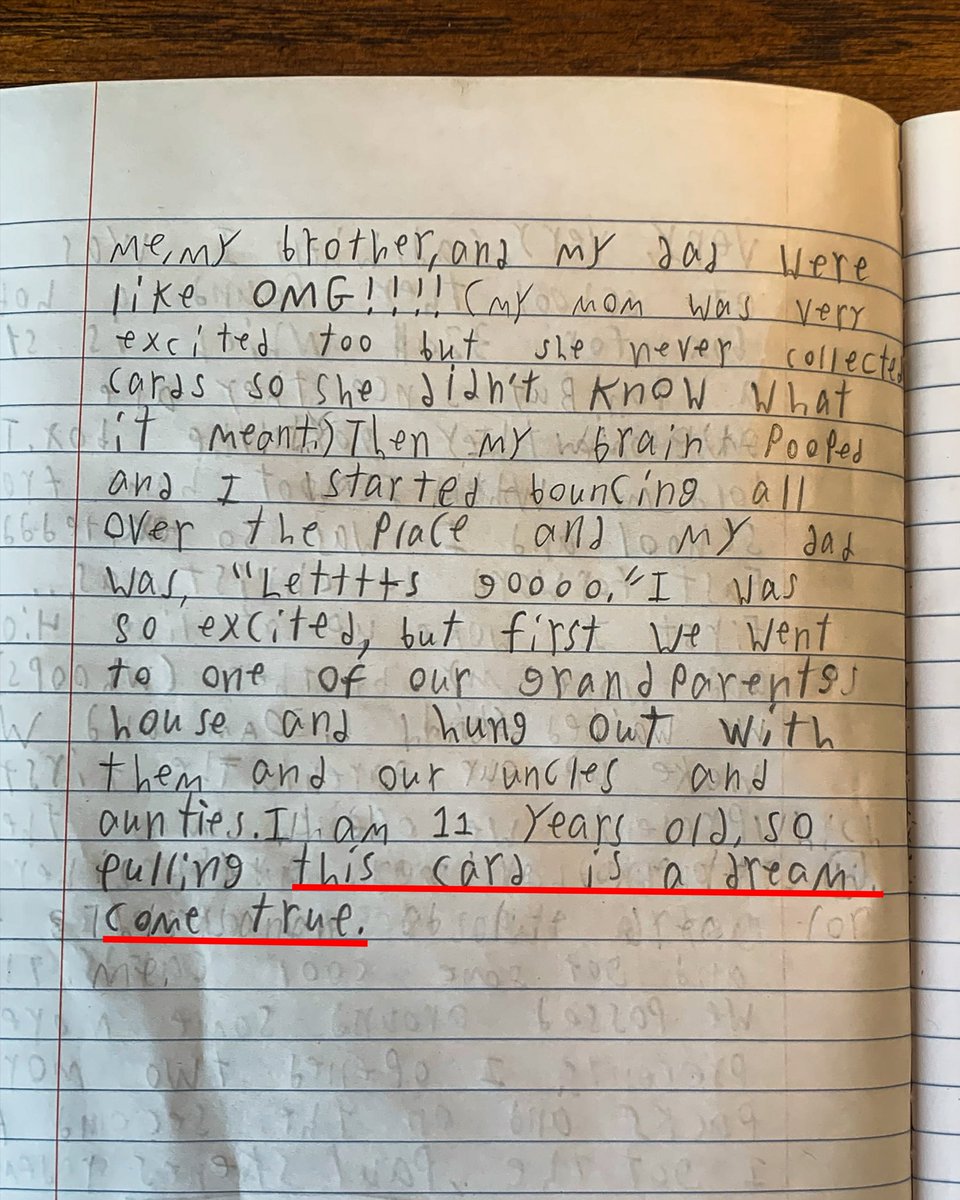 Me, my brother, and my dad were
like OMG!!!! (my mom was very
excited too but she never collected
cards so she didn't know what
it meant.) Then my brain pooped
and I started bouncing all
over the place and my dad
was, "Letttts goooo." I was
so excited, but first we went
to one of our grandparents
house and hung out with
them and our uncles and
aunties. I am 11 years old, so
pulling this card is a dream
come true.